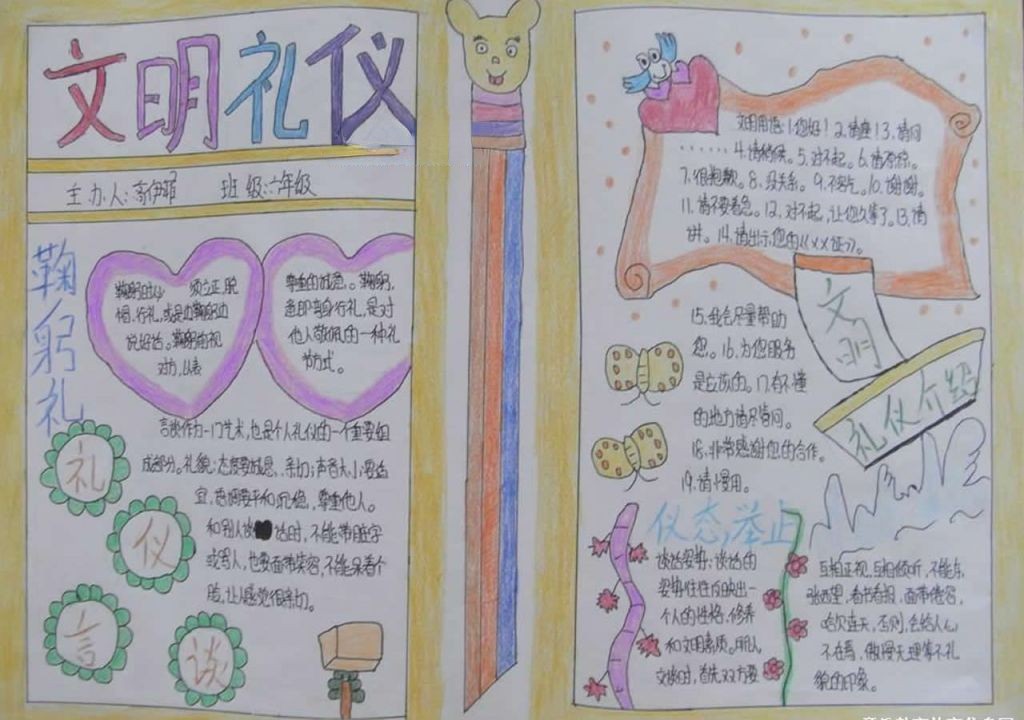 文明礼仪
主办人:高伊
班级:六年级
鞠躬礼
鞠躬时必须立正、脱
帽、行礼,或是边鞠躬边
说好话。鞠躬前视
对方,以表
尊重的诚意。鞠躬,
意即弯身行礼,是对
他人敬佩的一种礼
节方式。
言谈作为一门艺术,也是个人礼仪的一个重要组
成部分。礼貌:态度要诚恳、亲切;声音大小要适
宜,语调要平和沉稳,尊重他人。
和别人谈话时,不能带脏字
或骂人,也要面带笑容,不能呆着个
脸,让人感觉很亲切。
礼
仪
言
谈
文明用语:1.您好!2.请坐!3.请问
......4.请稍候。5.对不起。6.请原谅。
7.很抱歉。8.没关系。9.不客气。10.谢谢。
11.请不要着急。12.对不起,让您久等了。13.请
讲。14.请出示您的《××证》。
15.我会尽量帮助
您。16.为您服务
是应该的。17.有不懂
的地方请尽管问。
18.非常感谢您的合作。
19.请慢用。
文明
礼仪介绍
仪态举止
谈话姿势:谈话的
姿势往往反映出一
个人的性格、修养
和文明素质。所以,
交谈时,首先双方要
互相正视、互相倾听、不能东
张西望、看书看报、面带倦容、
哈欠连天。否则,会给人心
不在焉、傲慢无理等不礼
貌的印象。